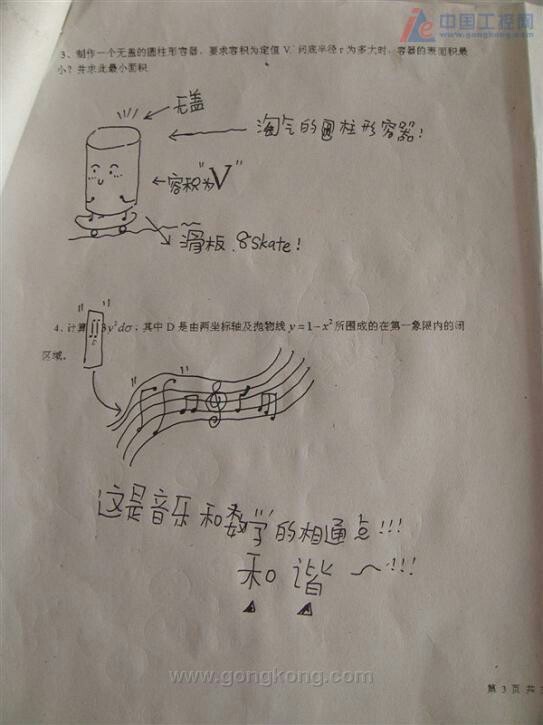 中国工控网
www.gongkong.com
3、制作一个无盖的圆柱形容器，要求容积为定值 V，问底半径 r 为多大时，容器的表面积最
小？并求此最小面积.
无盖
淘气的圆柱形容器！
容积为"V"
滑板 8Skate！
4、计算 3y²dσ，其中 D 是由两坐标轴及抛物线 y = 1 − x² 所围成的在第一象限内的闭
区域。
这是音乐和数学的相通点!!!
和谐～!!!
www.gongkong.com
第 3 页 共